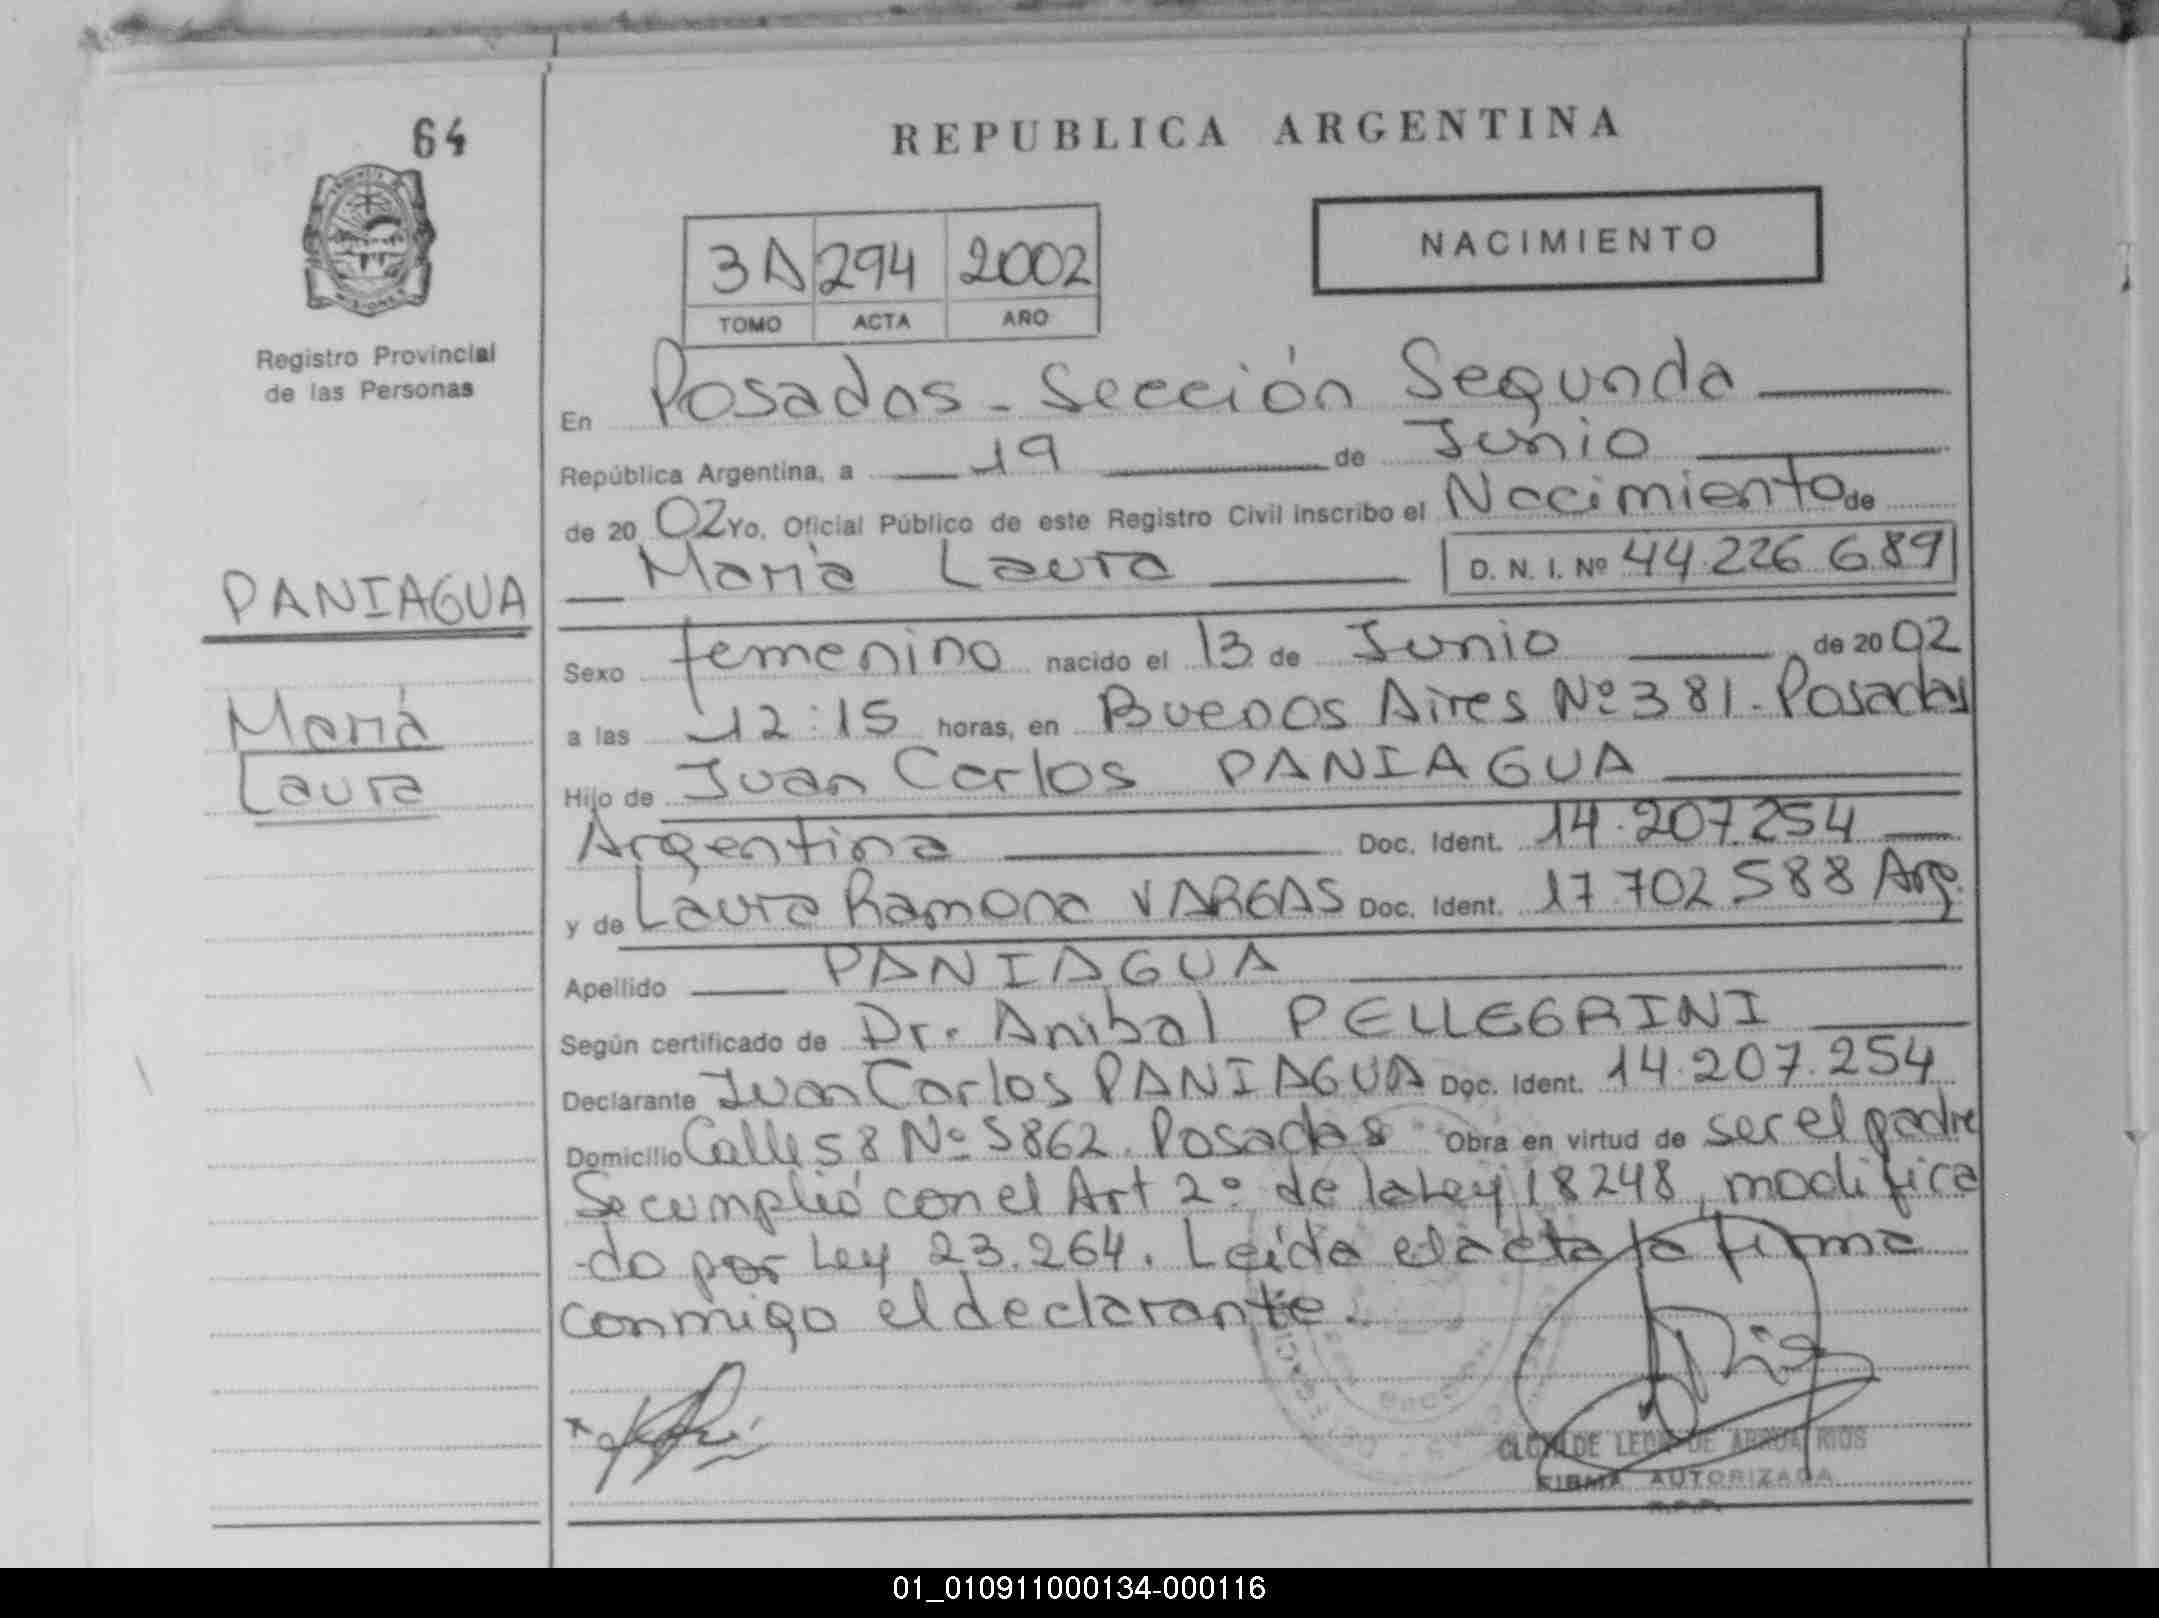 64
REPUBLICA ARGENTINA
3A 294 2002
TOMO ACTA AÑO
NACIMIENTO
Registro Provincial
de las Personas
En Posadas - Sección Segunda
República Argentina, a 19 de Junio
de 20 02 Yo, Oficial Público de este Registro Civil inscribo el Nacimiento de
María Laura D. N. I. Nº 44.226.689
PANIAGUA
María
Laura
Sexo femenino nacido el 13 de Junio de 20 02
a las 12:15 horas, en Buenos Aires Nº 381. Posadas
Hijo de Juan Carlos PANIAGUA
Argentina Doc. Ident. 14.207.254
y de Laura Ramona VARGAS Doc. Ident. 17.702.588 Arg.
Apellido PANIAGUA
Según certificado de Dr. Anibal PELLEGRINI
Declarante Juan Carlos PANIAGUA Doc. Ident. 14.207.254
Domicilio Calle 58 Nº 5862. Posadas Obra en virtud de ser el padre
Se cumplió con el Art 2º de la Ley 18248, modifica
-do por Ley 23.264. Leída el acta la firma
conmigo el declarante.
DE ARRUA RIOS
FIRMA AUTORIZADA
01_010911000134-000116